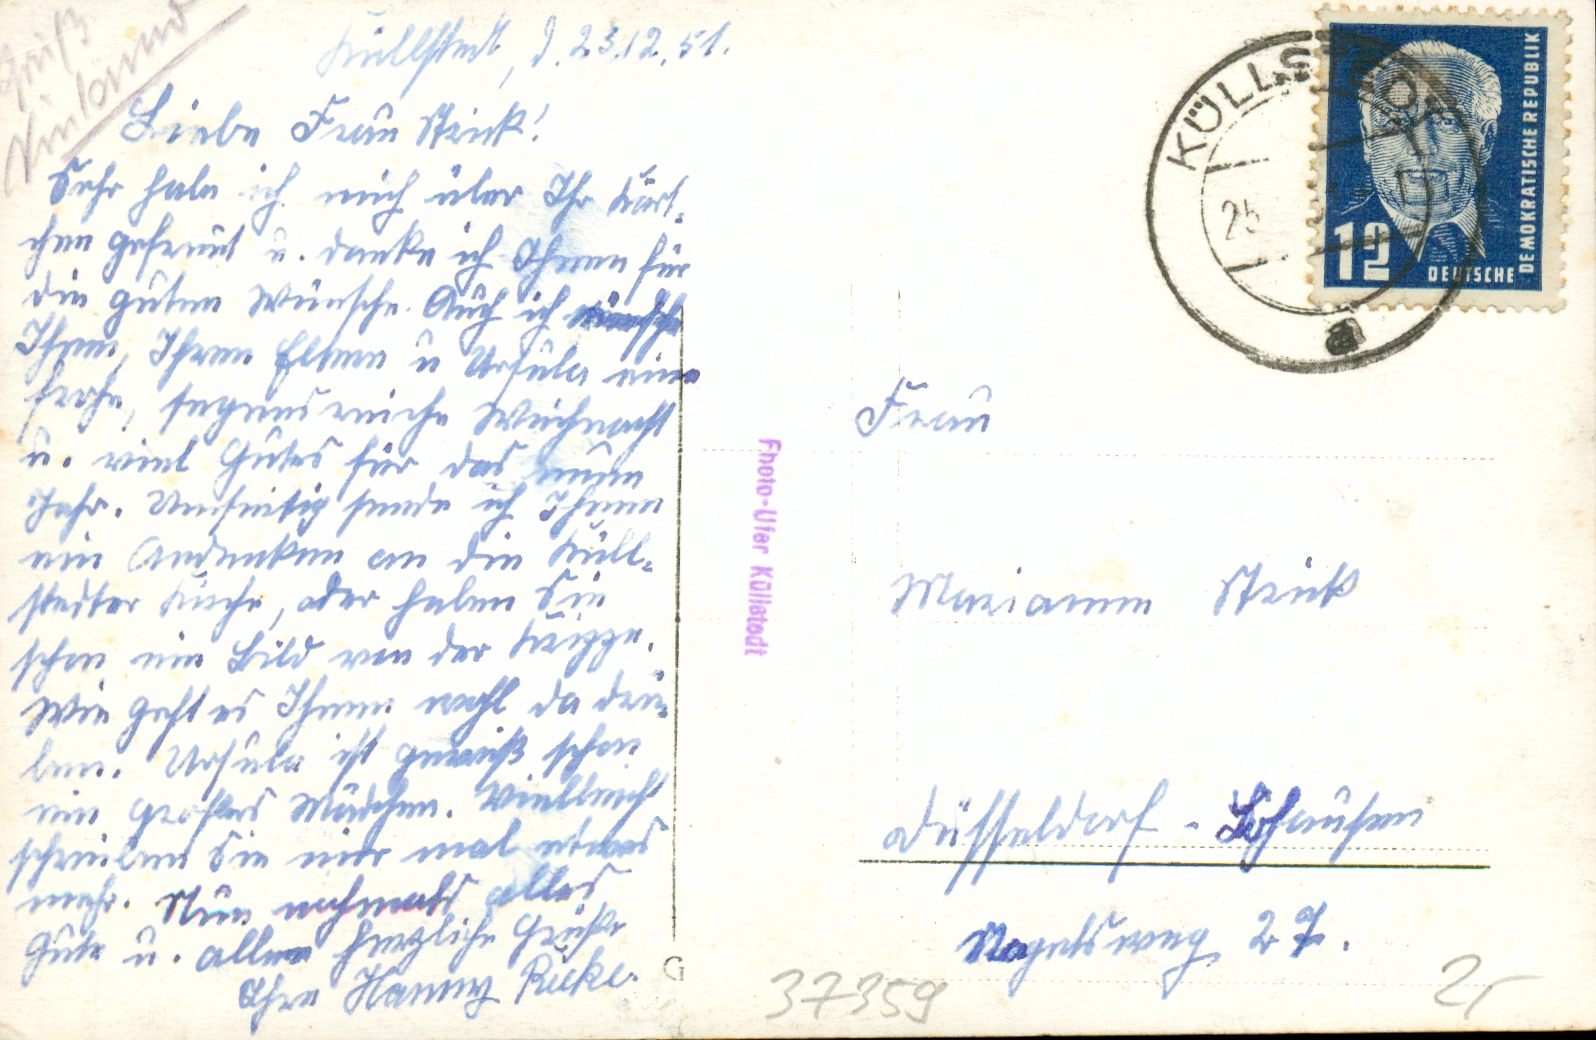 Küllstedt, d. 23.12.51.
Liebe Frau Strick!
Sehr habe ich mich über Ihr Kärt-
chen gefreut u. danke ich Ihnen für
die guten Wünsche. Auch ich wünsche
Ihnen, Ihren Eltern u Ursula eine
frohe, segensreiche Weihnacht
u. viel Gutes für das neue
Jahr. Umseitig sende ich Ihnen
ein Andenken an die Küll-
stedter Kirche, oder haben Sie
schon ein Bild von der Krippe.
Wie geht es Ihnen wohl da drü-
ben. Ursula ist gewiß schon
ein großes Mädchen. Vielleicht
schreiben Sie mir mal etwas
mehr. Nun nochmals alles
Gute u. allen herzliche Grüße
Ihre Hanny Rieke.
Photo-Ufer Küllstedt
KÜLLSTEDT
25
a
12
DEUTSCHE
DEMOKRATISCHE REPUBLIK
Frau
Marianne Strick
Düsseldorf - Lohausen
Nagelsweg 27.
G
37359